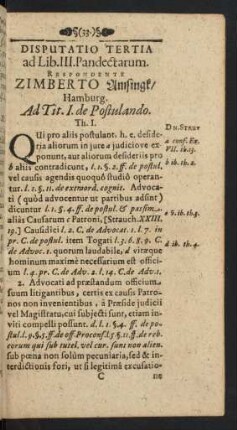 (33)
DISPUTATIO TERTIA
ad Lib. III. Pandectarum.
RESPONDENTE
ZIMBERTO Amsingk/
Hamburg.
Ad Tit. I. de Postulando.
Th. I.
QUi pro aliis postulant. h. e. deside-
ria aliorum in jure a judicio ve ex-
ponunt, aut aliorum desideriis pro
b aliis contradicunt, l. 1. §. 2. ff. de postul.
vel causis agendis quoquô studiô operan-
tur. l. 1. §. 11. de extraord. cognit. Advoca-
ti (quòd advocentur ut partibus adsint)
dicuntur l. 1. §. 4. ff. de postul. & passim,
aliàs Causarum c Patroni, [Strauch. XXIII.
19.] Causidici l. 2. C. de Advocat. l. 1. 7. in
pr. C. de postul. item Togati l. 3. 6. 8. 9. C.
de Advoc. quorum laudabile, d vitæque
hominum maximè necessarium est offici-
um l. 4. pr. C. de Adv. 2. l. 14. C. de Adv. 1.
2. Advocati ad præstandum officium,
suum litigantibus, certis ex causis Patro-
nos non invenientibus, à Præside judicii
vel Magistratu, cui subjecti sunt, etiam in-
viti compelli possunt. d. l. 1. §. 4. ff. de po-
stul. l. 9. §. 5. ff. de off. Proconf. l. 5 §. 11. ff. de reb.
eorum qui sub tutel. vel cur. sunt non alien.
sub pœna non solùm pecuniaria, sed & in-
terdictionis fori, ut si legitimâ excusatio-
C
ne
Dn. Struv
a conf. Ex.
VII. th. 15.
b ib. th. 2.
c ib. th. 3.
d ib. th. 4.